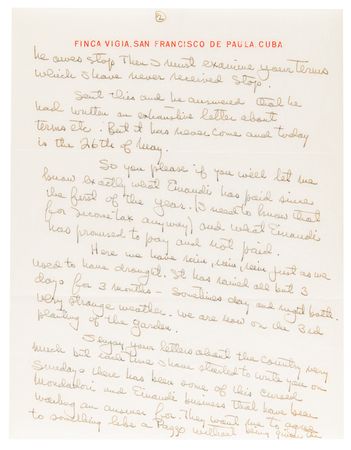 ②
FINCA VIGIA, SAN FRANCISCO DE PAULA, CUBA
he owes stop Then I must examine your terms
which I have never received stop.
Sent this and he answered that he
had written an exhaustive letter about
terms etc. But it has never come and today
is the 26th of May.
So you please if you will let me
know exactly what Einaudi has paid since
the first of the year. (I need to know that
for income tax anyway) and what Einaudi
has promised to pay and not paid.
Here we have rain, rain, rain just as we
used to have drought. It has rained all but 3
days for 3 months - Sometimes day and night both.
Very strange weather. We are now on the 3rd
planting of the garden.
I enjoy your letters about the country very
much but each time I have started to write you on
Sundays there has been some of this cursed
Mondadori and Einaudi business that have been
waiting an answer for. They want me to agree
to something like a without being given the